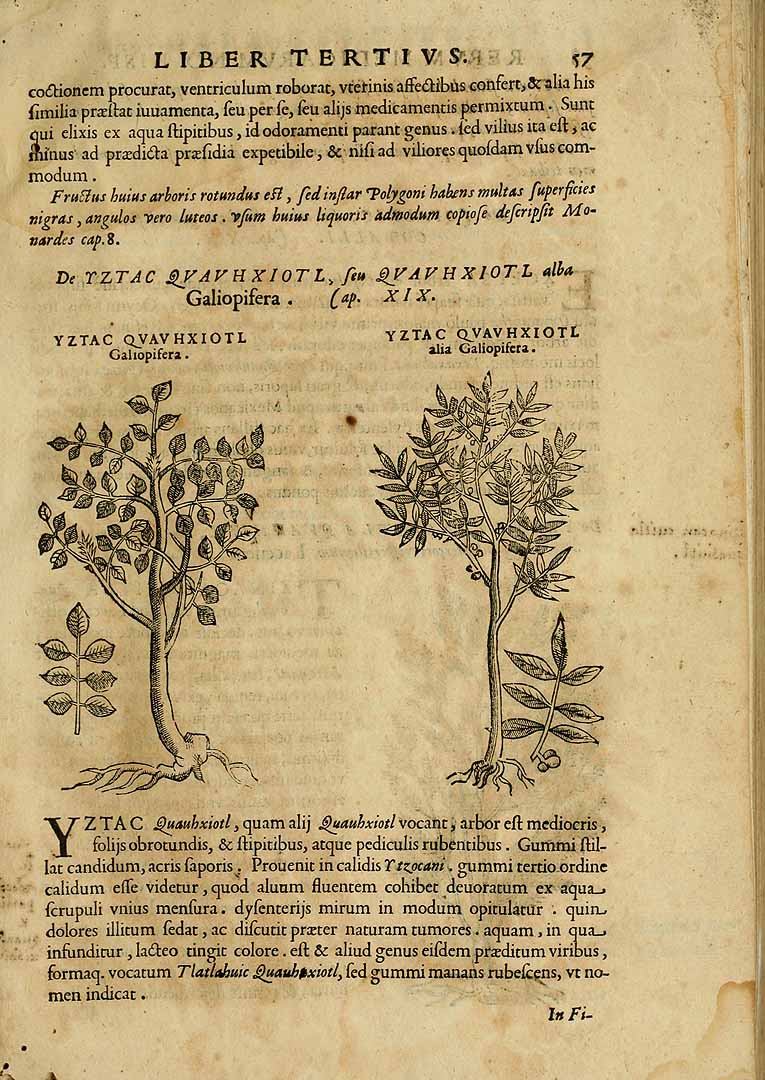 LIBER TERTIVS. 57
coctionem procurat, ventriculum roborat, vterinis affectibus confert, & alia his
ſimilia præſtat iuuamenta, ſeu per ſe, ſeu alijs medicamentis permixtum. Sunt
qui elixis ex aqua ſtipitibus, id odoramenti parant genus. ſed vilius ita eſt, ac
minus ad prædicta præſidia expetibile, & niſi ad viliores quoſdam vſus com-
modum.
Fructus huius arboris rotundus eſt, ſed inſtar Polygoni habens multas ſuperficies
nigras, angulos vero luteos. vſum huius liquoris admodum copioſe deſcripſit Mo-
nardes cap. 8.
De YZTAC QVAVHXIOTL, ſeu QVAVHXIOTL alba
Galiopifera. Cap. XIX.
YZTAC QVAVHXIOTL
Galiopifera.
YZTAC QVAVHXIOTL
alia Galiopifera.
YZTAC Quauhxiotl, quam alij Quauhxiotl vocant, arbor eſt mediocris,
folijs obrotundis, & ſtipitibus, atque pediculis rubentibus. Gummi ſtil-
lat candidum, acris ſaporis. Prouenit in calidis Ytzocani. gummi tertio ordine
calidum eſſe videtur, quod aluum fluentem cohibet deuoratum ex aqua
ſcrupuli vnius menſura. dyſenterijs mirum in modum opitulatur. quin
dolores illitum ſedat, ac diſcutit præter naturam tumores. aquam, in qua
infunditur, lacteo tingit colore. eſt & aliud genus eiſdem præditum viribus,
formaq. vocatum Tlatlahuic Quauhxiotl, ſed gummi manans rubeſcens, vt no-
men indicat.
In Fi-